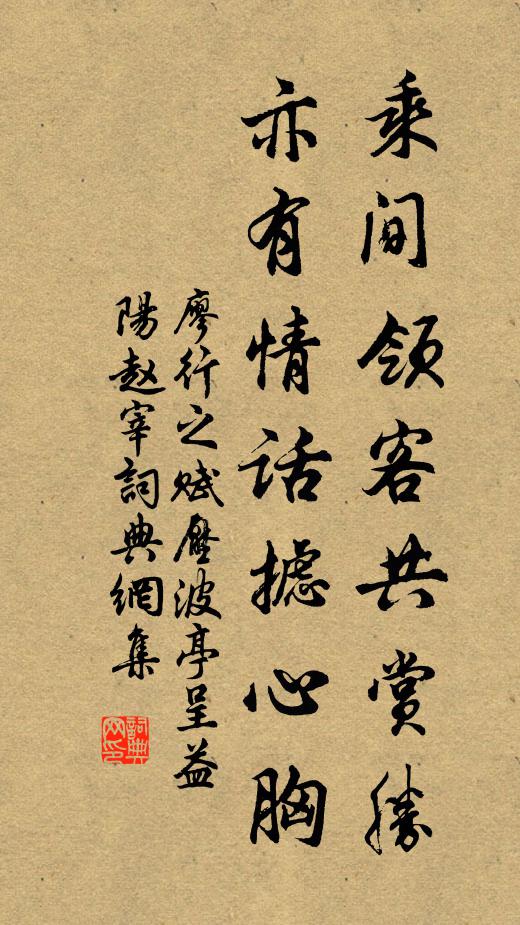 乘间领客共赏胜
亦有情话摅心胸
廖行之赋压波亭呈益
陽赵宰詞典網集
詞典网印